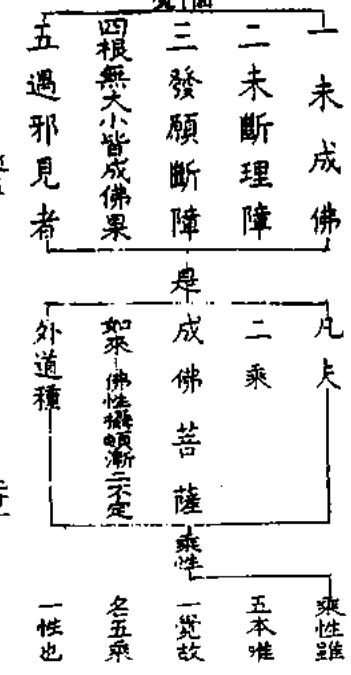 一未成佛
二未斷理障
三發願斷障
四根無大小皆成佛果
五遇邪見者
是
凡夫
二乘
成佛菩薩
如來佛性攝頓漸二不定
外道種
乘性
乘性雖
五本唯
一覺故
名五乘
一性也